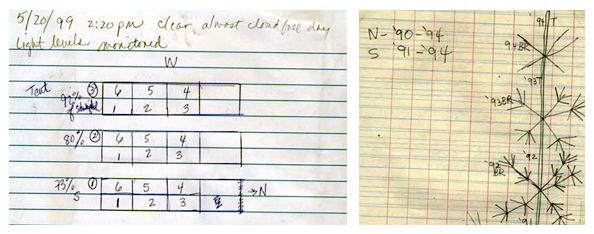 5/20/99 2:20 pm clear, almost cloud free day
light levels monitored
W
Tend
92% ③ 6 5 4
of 1 2 3
80% ② 6 5 4
1 2 3
73% ① 6 5 4 →N
S 1 2 3
N- '90-'94
S '91-'94
'94 T
94BR
'93T
'93BR
'92
'92
BR
'91